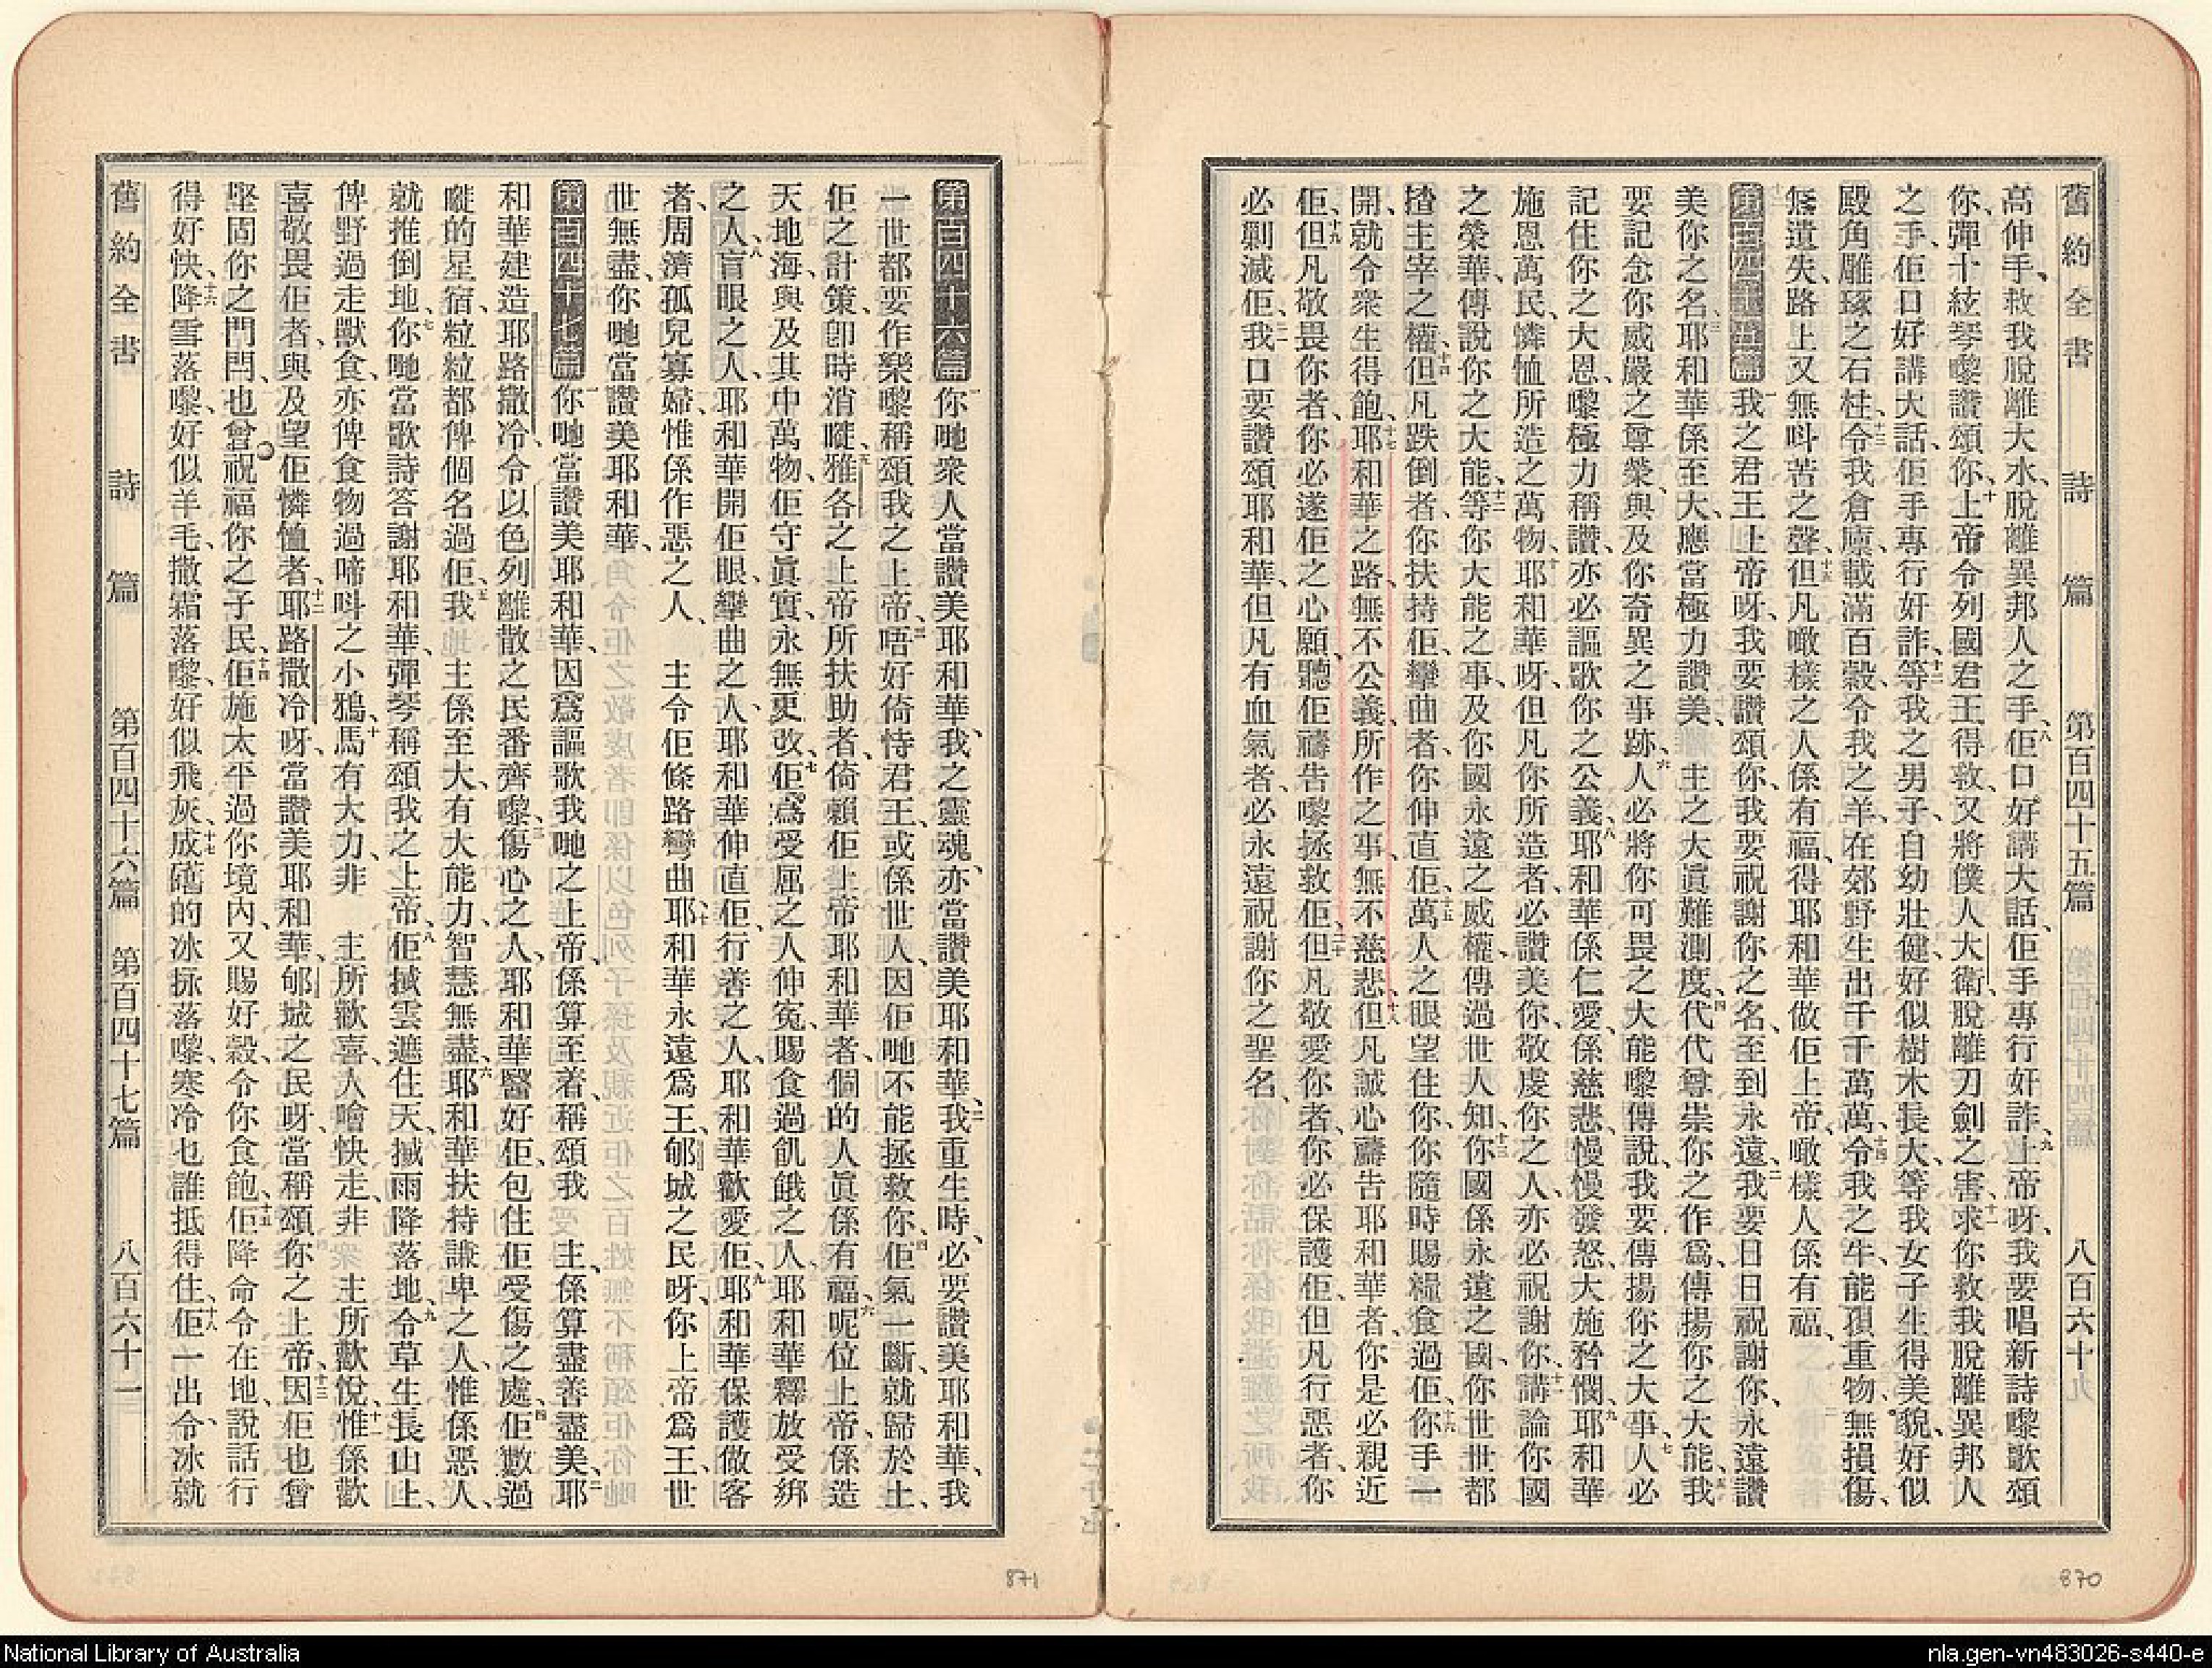 舊約全書　詩篇　第百四十五篇　八百六十九
高伸手、救我脫離大水、脫離異邦人之手、八佢口好講大話、佢手專行奸詐、九上帝呀、我要唱新詩嚟歌頌
你、彈十絃琴嚟讚頌你、十上帝令列國君王得救、又將僕人大衛脫離刀劍之害、十一求你救我脫離異邦人
之手、佢口好講大話、佢手專行奸詐、十二等我之男子、自幼壯健、好似樹木長大、等我女子生得美貌、好似
殿角雕琢之石柱、十三令我倉廩載滿百穀、令我之羊、在郊野生出千千萬萬、十四令我之牛、能孭重物、無損傷、
無遺失、路上又無呌苦之聲、十五但凡噉樣之人係有福、得耶和華做佢上帝、噉樣人係有福、
第百四十五篇　一我之君王上帝呀、我要讚頌你、我要祝謝你之名、至到永遠、二我要日日祝謝你、永遠讚
美你之名、三耶和華係至大、應當極力讚美、　主之大眞難測度、四代代尊祟你之作爲、傳揚你之大能、五我
要記念你威嚴之尊榮、與及你奇異之事跡、六人必將你可畏之大能嚟傳說、我要傳揚你之大事、七人必
記住你之大恩、嚟極力稱讚、亦必謳歌你之公義、八耶和華係仁愛、係慈悲、慢慢發怒、大施矜憫、九耶和華
施恩萬民、憐恤所造之萬物、十耶和華呀、但凡你所造者、必讚美你、敬虔你之人、亦必祝謝你、十一講論你國
之榮華、傳說你之大能、十二等你大能之事、及你國永遠之威權、傳過世人知、十三你國係永遠之國、你世世都
揸主宰之權、十四但凡跌倒者、你扶持佢、攣曲者、你伸直佢、十五萬人之眼望住你、你隨時賜糧食過佢、十六你手一
開、就令衆生得飽、十七耶和華之路、無不公義、所作之事、無不慈悲、十八但凡誠心禱告耶和華者、你是必親近
佢、十九但凡敬畏你者、你必遂佢之心願、聽佢禱告嚟拯救佢、二十但凡敬愛你者、你必保護佢、但凡行惡者、你
必剿滅佢、二一我口要讚頌耶和華、但凡有血氣者、必永遠祝謝你之聖名、
870
第百四十六篇　一你哋衆人當讚美耶和華、我之靈魂、亦當讚美耶和華、二我重生時、必要讚美耶和華、我
一世都要作樂嚟稱頌我之上帝、三唔好倚恃君王、或係世人、因佢哋不能拯救你、四佢氣一斷、就歸於土、
佢之計策、卽時消嘥、五雅各之上帝所扶助者、倚賴佢上帝耶和華者、個的人眞係有福、六呢位上帝、係造
天地海、與及其中萬物、佢守眞實、永無更改、七佢爲受屈之人伸寃、賜食過飢餓之人、耶和華釋放受綁
之人、八盲眼之人、耶和華開佢眼、攣曲之人、耶和華伸直佢、行善之人、耶和華歡愛佢、九耶和華保護做客
者、周濟孤兒寡婦、惟係作惡之人、　主令佢條路彎曲、十耶和華永遠爲王、郇城之民呀、你上帝爲王、世
世無盡、你哋當讚美耶和華、
第百四十七篇　一你哋當讚美耶和華、因爲謳歌我哋之上帝、係算至着、稱頌我　主、係算盡善盡美、二耶
和華建造耶路撒冷、令以色列離散之民番齊嚟、三傷心之人、耶和華醫好佢、包住佢受傷之處、四佢數過
嘥的星宿、粒粒都俾個名過佢、五我　主係至大、有大能力、智慧無盡、六耶和華扶持謙卑之人、惟係惡人、
就推倒地、七你哋當歌詩答謝耶和華、彈琴稱頌我之上帝、八佢摵雲遮住天、摵雨降落地、九令草生長山上、
俾野過走獸食、亦俾食物過啼呌之小鴉、十馬有大力、非　主所歡喜、人噲快走、非　主所歡悅、十一惟係歡
喜敬畏佢者、與及望佢憐恤者、十二耶路撒冷呀、當讚美耶和華、郇城之民呀、當稱頌你之上帝、十三因佢也曾
堅固你之門閂、也曾祝福你之子民、十四佢施太平過你境內、又賜好穀、令你食飽、十五佢降命令在地、說話行
得好快、十六降雪落嚟、好似羊毛、撒霜落嚟、好似飛灰、十七成嚿的冰掁落嚟、寒冷也誰抵得住、十八佢一出令、冰就
舊約全書　詩篇　第百四十六篇　第百四十七篇　八百六十一
871
National Library of Australia
nla.gen-vn483026-s440-e